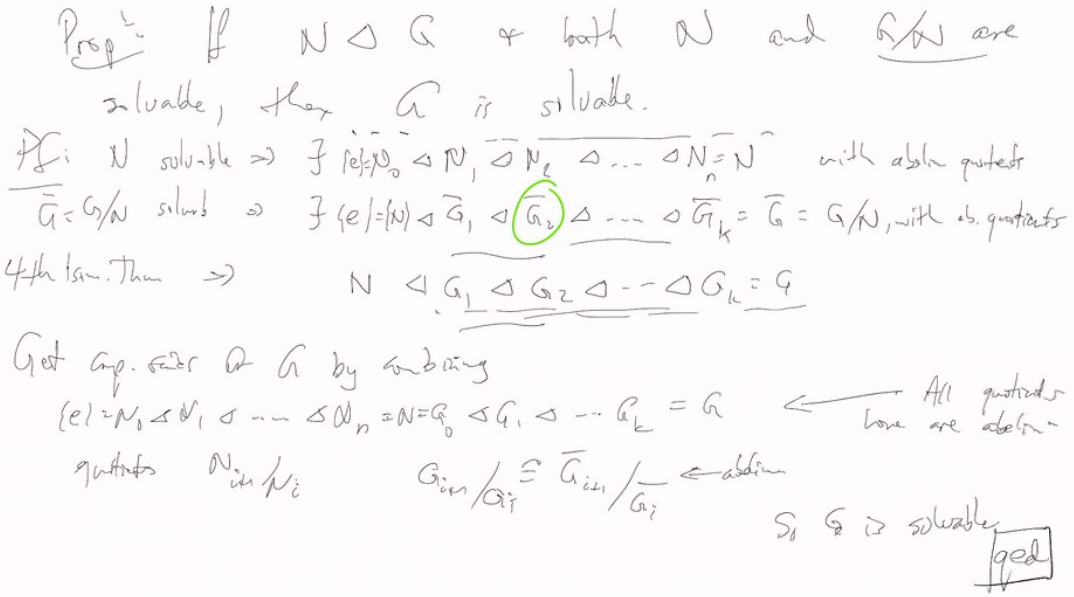 Prop: If N ⊲ G & both N and G/N are
solvable, then G is solvable.
Pf: N solvable ⇒ ∃ {e}=N₀ ⊲ N₁ ⊲ N₂ ⊲ .... ⊲ Nₙ = N with abelian quotients
G̅ = G/N solvab ⇒ ∃ {e}={N} ⊲ G̅₁ ⊲ G̅₂ ⊲ .... ⊲ G̅ₖ = G̅ = G/N, with ab. quotients
4th Isom. Thm ⇒ N ⊲ G₁ ⊲ G₂ ⊲ ... ⊲ Gₖ = G
Get comp. series of G by combining
{e} = N₀ ⊲ N₁ ⊲ .... ⊲ Nₙ = N = G₀ ⊲ G₁ ⊲ ... Gₖ = G ← All quotients
here are abelian
quotients Nᵢ₊₁/Nᵢ Gᵢ₊₁/Gᵢ ≅ G̅ᵢ₊₁/G̅ᵢ ← abelian
So G is solvable
qed